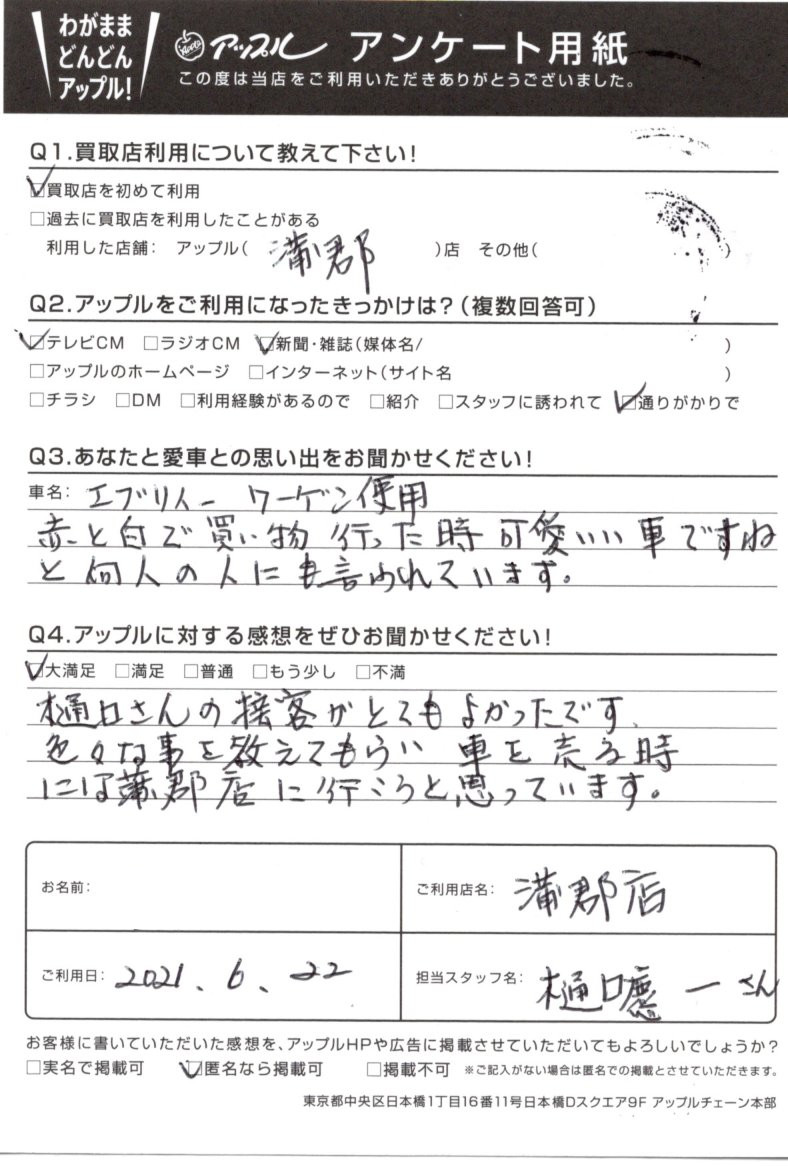 わがまま
どんどん
アップル!
アップル アンケート用紙
この度は当店をご利用いただきありがとうございました。
Q1.買取店利用について教えて下さい!
☑買取店を初めて利用
□過去に買取店を利用したことがある
利用した店舗: アップル( 蒲郡 )店 その他( )
Q2.アップルをご利用になったきっかけは?(複数回答可)
☑テレビCM □ラジオCM ☑新聞・雑誌(媒体名/ )
□アップルのホームページ □インターネット(サイト名 )
□チラシ □DM □利用経験があるので □紹介 □スタッフに誘われて ☑通りがかりで
Q3.あなたと愛車との思い出をお聞かせください!
車名: エブリィー ワーゲン使用
赤と白で買い物行った時可愛いい車ですね
と何人の人にも言われています。
Q4.アップルに対する感想をぜひお聞かせください!
☑大満足 □満足 □普通 □もう少し □不満
樋口さんの接客がとてもよかったです、
色々な事を教えてもらい 車を売る時
には蒲郡店に行こうと思っています。
お名前:
ご利用店名: 蒲郡店
ご利用日: 2021、6、22
担当スタッフ名: 樋口慶一さん
お客様に書いていただいた感想を、アップルHPや広告に掲載させていただいてもよろしいでしょうか?
□実名で掲載可 ☑匿名なら掲載可 □掲載不可 ※ご記入がない場合は匿名での掲載とさせていただきます。
東京都中央区日本橋1丁目16番11号日本橋Dスクエア9F アップルチェーン本部